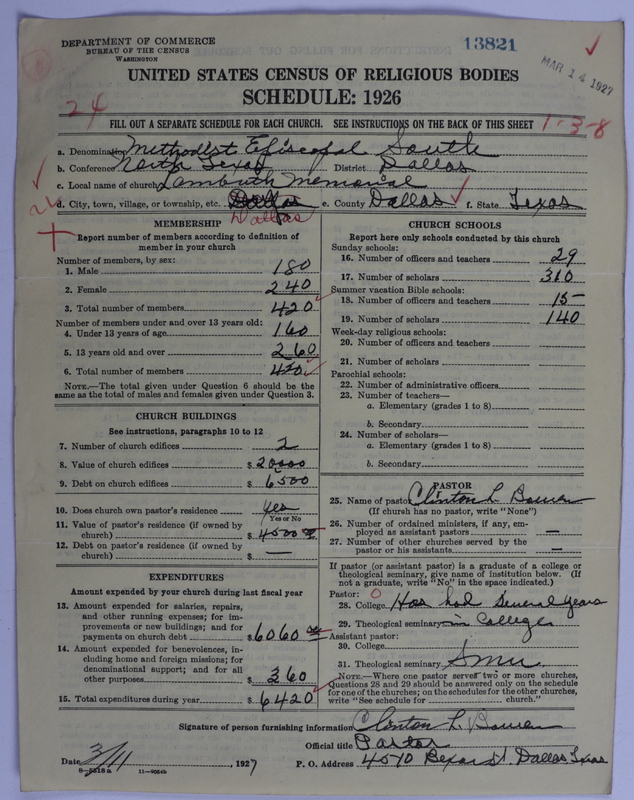 DEPARTMENT OF COMMERCE
BUREAU OF THE CENSUS
WASHINGTON
13821
MAR 14 1927
UNITED STATES CENSUS OF RELIGIOUS BODIES
SCHEDULE: 1926
24
FILL OUT A SEPARATE SCHEDULE FOR EACH CHURCH. SEE INSTRUCTIONS ON THE BACK OF THIS SHEET
1-3-8
a. Denomination Methodist Episcopal South
b. Conference North Texas District Dallas
c. Local name of church Lambuth Memorial
d. City, town, village, or township, etc. Dallas e. County Dallas f. State Texas
Dallas
MEMBERSHIP
Report number of members according to definition of member in your church
Number of members, by sex:
1. Male 180
2. Female 240
3. Total number of members 420
Number of members under and over 13 years old:
4. Under 13 years of age 160
5. 13 years old and over 260
6. Total number of members 420
NOTE.—The total given under Question 6 should be the same as the total of males and females given under Question 3.
CHURCH BUILDINGS
See instructions, paragraphs 10 to 12
7. Number of church edifices 2
8. Value of church edifices $ 20000
9. Debt on church edifices $ 6500
10. Does church own pastor's residence? yes
Yes or No
11. Value of pastor's residence (if owned by church) $ 4500
12. Debt on pastor's residence (if owned by church) $ —
EXPENDITURES
Amount expended by your church during last fiscal year
13. Amount expended for salaries, repairs, and other running expenses; for improvements or new buildings; and for payments on church debt $ 6060
14. Amount expended for benevolences, including home and foreign missions; for denominational support; and for all other purposes $ 360
15. Total expenditures during year $ 6420
CHURCH SCHOOLS
Report here only schools conducted by this church
Sunday schools:
16. Number of officers and teachers 29
17. Number of scholars 310
Summer vacation Bible schools:
18. Number of officers and teachers 15
19. Number of scholars 140
Week-day religious schools:
20. Number of officers and teachers
21. Number of scholars
Parochial schools:
22. Number of administrative officers
23. Number of teachers—
a. Elementary (grades 1 to 8)
b. Secondary
24. Number of scholars—
a. Elementary (grades 1 to 8)
b. Secondary
PASTOR
25. Name of pastor Clinton L. Bowen
(If church has no pastor, write "None")
26. Number of ordained ministers, if any, employed as assistant pastors —
27. Number of other churches served by the pastor or his assistants —
If pastor (or assistant pastor) is a graduate of a college or theological seminary, give name of institution below. (If not a graduate, write "No" in the space indicated.)
Pastor: 0
28. College Has had several years
29. Theological seminary in College
Assistant pastor:
30. College
31. Theological seminary SMU
NOTE.—Where one pastor serves two or more churches, Questions 28 and 29 should be answered only on the schedule for one of the churches; on the schedules for the other churches, write "See schedule for church."
Signature of person furnishing information Clinton L. Bowen
Official title Pastor
Date 3/11, 1927 P. O. Address 4510 Bexar St. Dallas Texas
8-5518 a 11-9054b